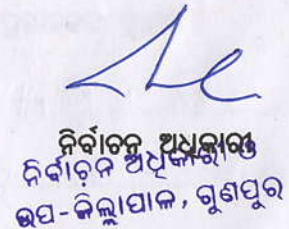 ନିର୍ବାଚନ ଅଧିକାରୀ
ନିର୍ବାଚନ ଅଧିକାରୀ ଓ
ଉପ-ଜିଲ୍ଲାପାଳ, ଗୁଣପୁର